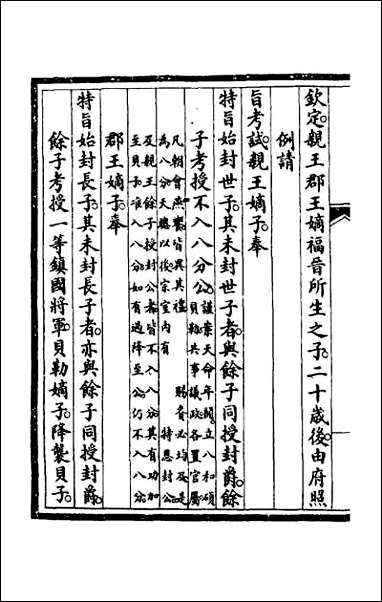 欽定親王郡王嫡福晉所生之子二十歲後由府照
例請
旨考試親王嫡子奉
特旨始封世子其未封世子者與餘子同授封爵餘
子考授不入八分公謹案天命年間立八和碩
貝勒共事議政各置官屬
凡朝會燕饗皆異其禮 賜賚必均及是
為八分天聰以後宗室內有 特恩封公
及親王餘子授封公者皆不入八分其有功加
至貝子准入八分如有過降至公仍不入八分
郡王嫡子奉
特旨始封長子其未封長子者亦與餘子同授封爵
餘子考授一等鎮國將軍貝勒嫡子降襲貝子